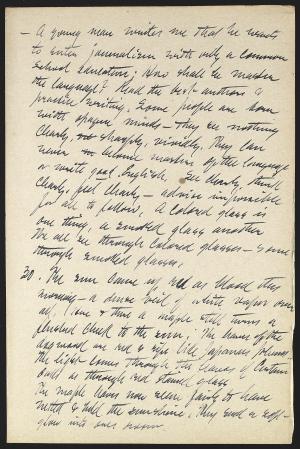 — A young man writes me that he wants
to enter journalism with only a common
school education; How shall he master
the language? Read the best authors &
practice writing. Some people are born
with opaque minds — they see nothing
clearly, sharply, vividly. They can
never become masters of the language
or write good English. See clearly, think
clearly, feel clearly — advice impossible
for all to follow. A colored glass is
one thing, a smoked glass another
We all see through colored glasses — some
through smoked glasses.
30. The sun came up red as blood this
morning — a dense veil of white vapor over
all, now & then a maple tree turns a
flushed cheek to the sun. The leaves of the
dogwood are red &
the light comes through the leaves of certain
as through red stained glass
The maple leaves now seem fairly to have
the sunshine. They shed a soft
glow into ones room.